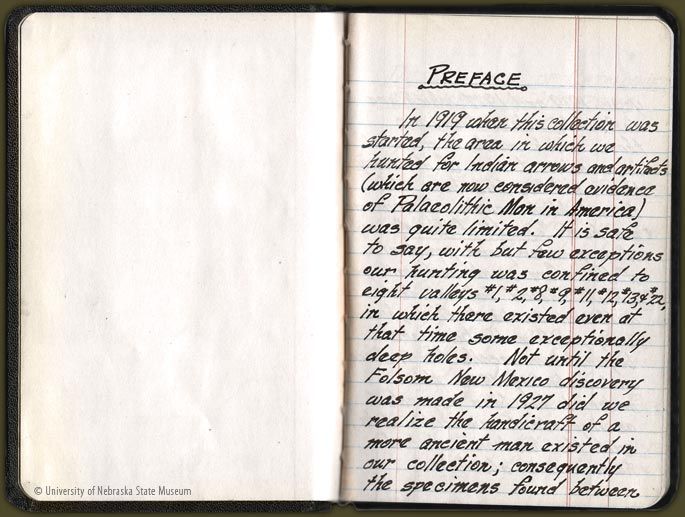 PREFACE
In 1919 when this collection was
started, the area in which we
hunted for Indian arrows and artifacts
(which are now considered evidence
of Palaeolithic Man in America)
was quite limited. It is safe
to say, with but few exceptions
our hunting was confined to
eight valleys #1, #2, #8, #9, #11, #12, #13, & #22,
in which there existed even at
that time some exceptionally
deep holes. Not until the
Folsom New Mexico discovery
was made in 1927 did we
realize the handicraft of a
more ancient man existed in
our collection; consequently
the specimens found between
© University of Nebraska State Museum